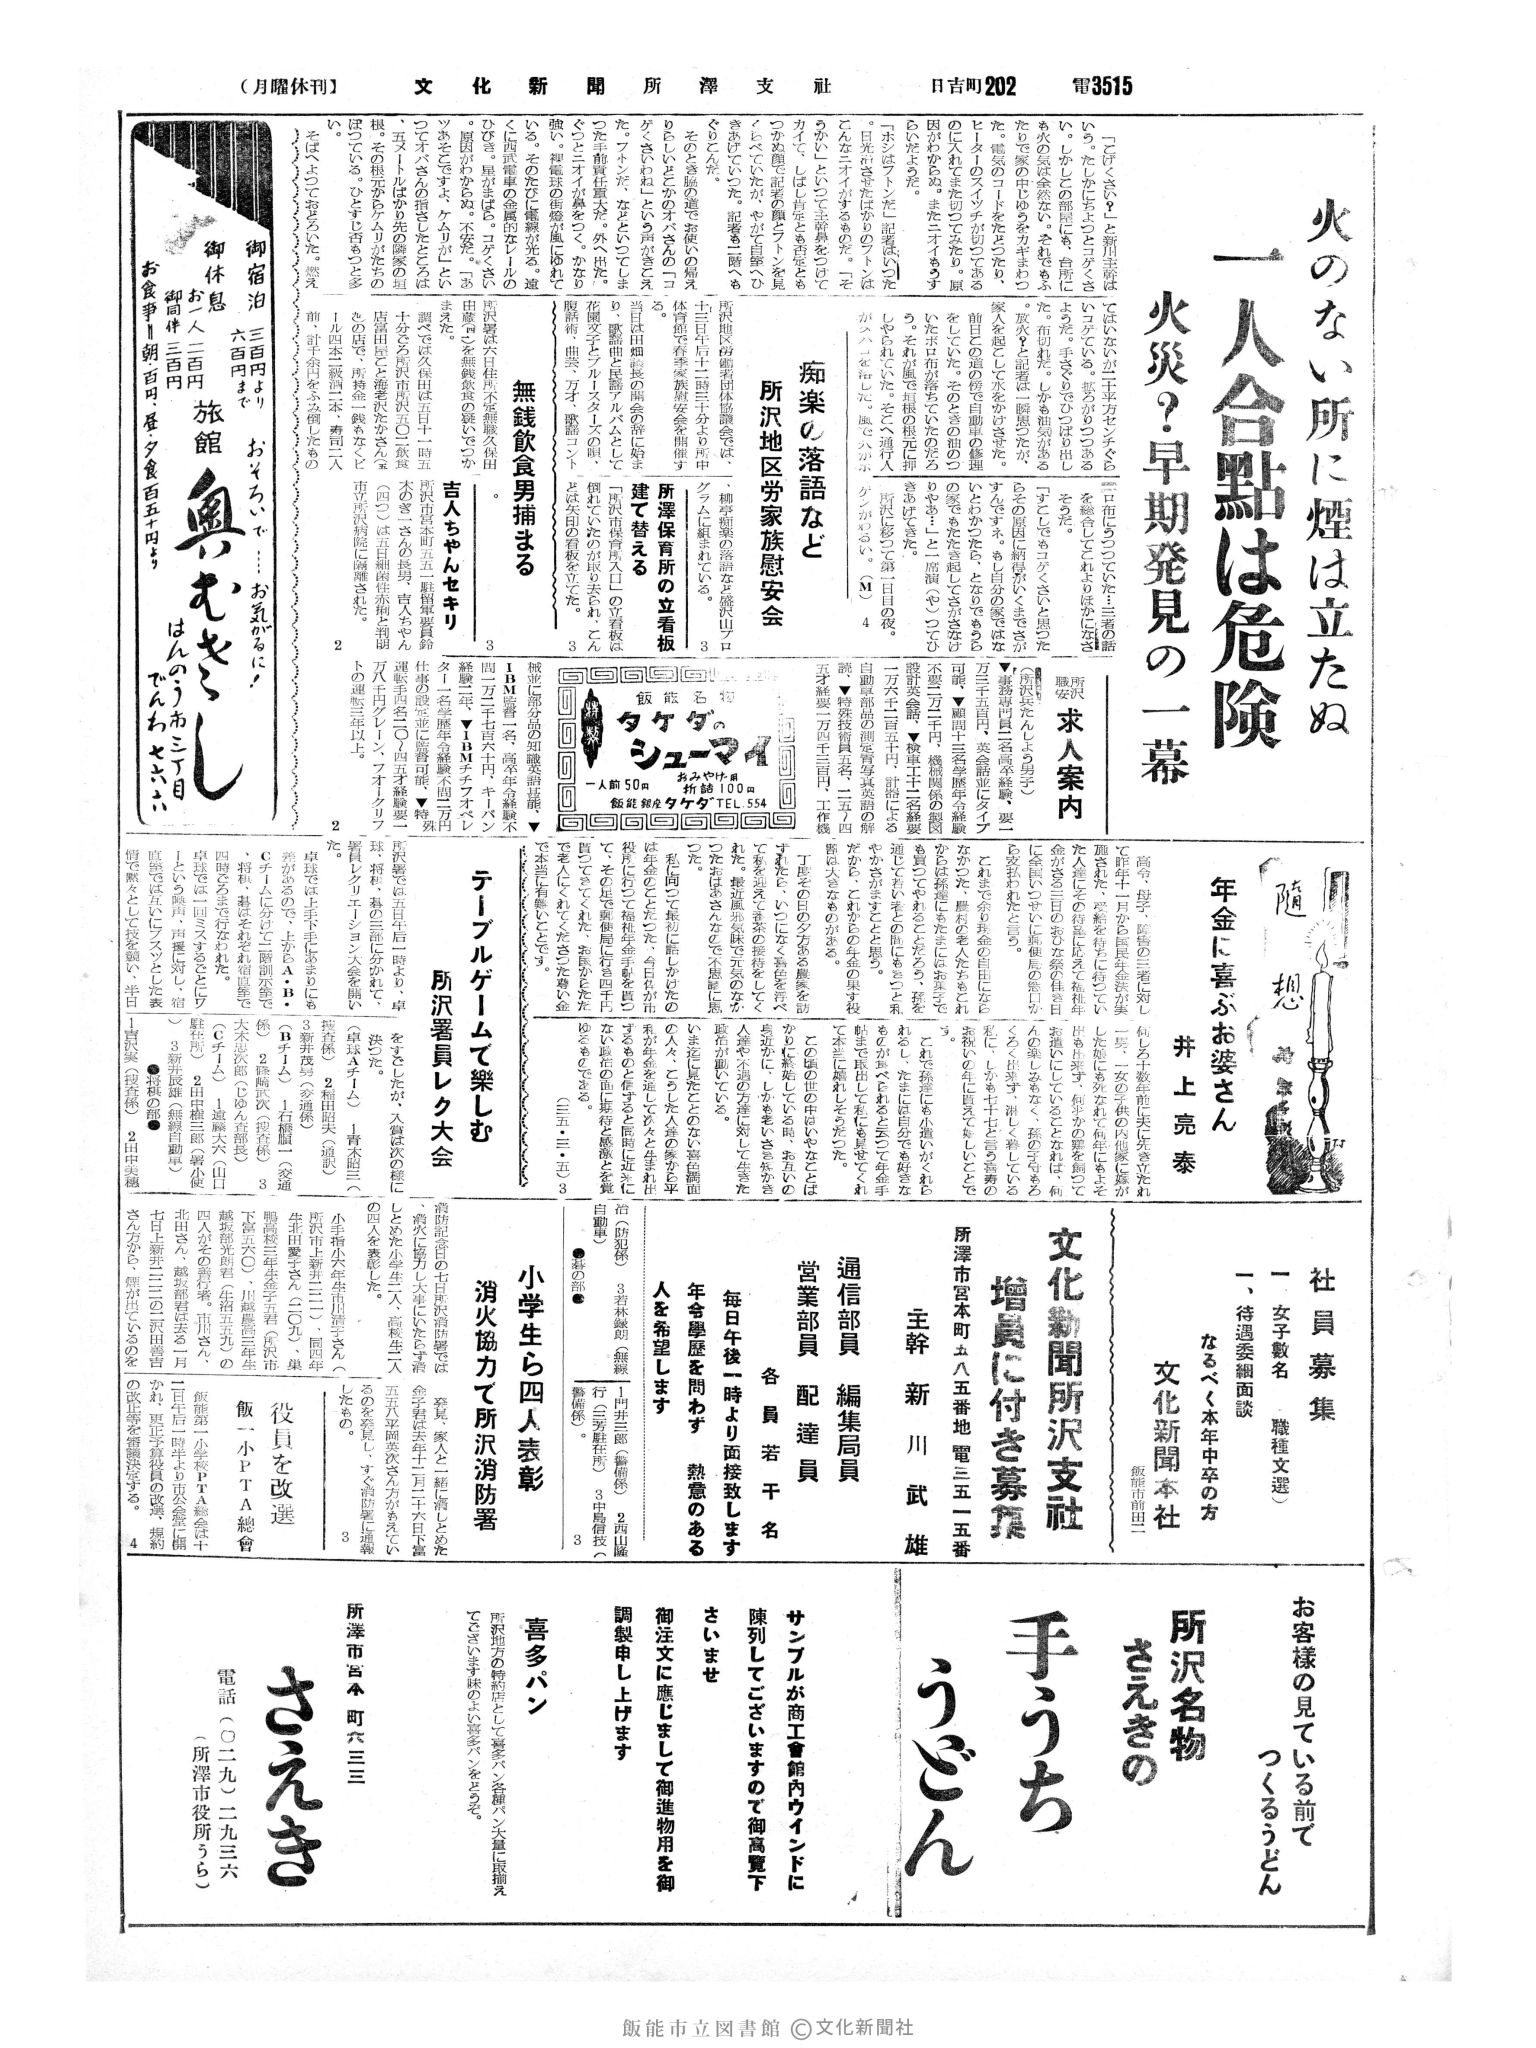 (月曜休刊】 文化新聞所澤支社 日吉町202 電3515
火のない所に煙は立たぬ
一人合點は危険
火災?早期発見の一幕
「こげくさい?」と新川主幹は
いう。たしかにちよつとコゲくさ
い。しかしこの部屋にも、台所に
も火の気は全然ない。それでもふ
たりで家の中じゆうをカギまわつ
た。電気のコードをたとつたり、
ヒーターのスイツチが切つてある
のに入れてまた切つてみたり。原
因がわからぬ。またニオイもうす
らいだようだ。
「ホシはフトンだ」記者はいつた
。日光浴させたばかりのフトンは
こんなニオイがするものだ。「そ
うかい」といつて主幹鼻をつけて
カイて、しばし肯定とも否定とも
つかぬ顔で記者の顔とフトンを見
くらべていたが、やがて自室へひ
きあげていつた。記者も二階へも
ぐりこんだ。
そのとき脇の道でお使いの帰え
りらしいどこかのオバさんの「コ
ゲくさいわね」という声がきこえ
た。フトンだ、などといつてしま
つた手前責任重大だ。外へ出た。
ぐつとニオイが鼻をつく。かなり
強い。裸電球の街燈が風にゆれて
いる。そのたびに電線が光る。遠
くに西武電車の金属的なレールの
ひびき。星がまばら。コゲくさい
。原因がわからぬ。不安だ。「あ
ツあそこですよ、ケムリが」とい
つてオバさんの指さしたところは
、五メートルばかり先の隣家の垣
根。その根元からケムリがたちの
ぼつている。ひとすじ否もつと多
い。
そばへよつておどろいた。燃え
てはいないが二十平方センチぐら
いコゲている。拡ろがりつつある
ようだ。手さぐりでひつぱり出し
た。布切れだ。しかも油気がある
。放火?と記者は一瞬思つたが、
家人を起こして水をかけさせた。
前日この道の傍で自動車の修理
をしていた。そのときの油のつ
いたボロ布が落ちていたのだろ
う。それが風で垣根の根元に押
しやられていた。そこへ通行人
がスイガラを落した。風で火がボ
ロ布にうつつていた…三者の話
を総合してこれよりほかになさ
そうだ。
「すこしでもコゲくさいと思つた
らその原因に納得がいくまでさが
すんですネ。もし自分の家ではな
いとわかつたら、となりでもうら
の家でもたたき起してさがさなけ
りやあ…」と一席演(や)つてひ
きあげてきた。
所沢に移つて第一日目の夜。
ゲンがわるい。(M) 4
痴楽の落語など
所沢地区労家族慰安会
所沢地区労働者団体協議会では、
十三日午后十二時三十分より所中
体育館で春季家族慰安会を開催す
る。
当日は田畑議長の開会の辞に始ま
り、歌謡曲と民謡アルバムとして
花園文子とブルースターズの唄、
腹話術・曲芸・万才・歌謡コント
、柳亭痴楽の落語など盛沢山プロ
グラムに組まれている。 3
所澤保育所の立看板
建て替える
「所沢市保育所入口」の立看板は
倒れていたのが取り去られ、こん
どは矢印の看板を立てた。 3
無銭飲食男捕まる
所沢署は六日住所不定無職久保田
由蔵を無銭飲食の疑いでつか
まえた。
調べでは久保田は五日十一時五
十分ごろ所沢市所沢五〇二飲食
店富田屋こと海老沢たかさん
の店で、所持金一銭もなくビ
ール四本二級酒二本・寿司二人
前、計千余円をふみ倒したもの
。 3
吉人ちやんセキリ
所沢市宮本町五五一駐留軍要員鈴
木のぎ一さんの長男、吉人ちゃん
(四つ)は五日細菌性赤痢と判明
市立所沢病院に隔離された。
2
所沢
職安
求人案内
(所沢兵たんしよう男子)
▼事務専門員二名高卒経験、要一
万三千五百円、英会話並にタイプ
可能、▼顧問十三名学歴年令経験
不要二万二千円、機械関係の製図
設計英会話、▼検車工十二名経要
一万六千二百五十円、計器による
自動車部品の測定質写真英語の解
読、▼特殊技術員五名、二五~四
五才経要一万四千三百円、工作機
械並に部分品の知識英語甚能、▼
IBM監督一名、高卒年令経験不
問一万二千七百六十円、キーパン
ター一名学歴年令経験不問二万円
経験二年、▼IBMチチフオペレ
仕事の設定並に監督可能、▼特殊
運転手四名二〇~四五才経験要一
万八千円クレーン、フオークリフ
トの運転三年以上。
2
飯能名物
特製
タケダの
シューマイ
一人前50円
おみやげ用
折詰100円
飯能銀座タケダTEL.554
御宿泊 三百円より
六百円まで
御休息
お一人 二百円
御同伴 三百円
お食事=朝・百円、昼・夕食百五十円より
おそろいで……お気がるに!
旅館
奥むさし
はんのう市三丁目
でんわ 七六六
隨想
年金に喜ぶお婆さん
井上亮泰
高令、母子、障害の三者に対し
て昨年十一月から国民年金法が実
施された、受給を待ちに待つてい
た人達にその待望に応えて福祉年
金がさる三日のおひな祭の佳き日
に全国いつせいに郵便局の窓口か
ら支払われたと言う。
これまで余り現金の自由になら
なかつた、農村の老人たちもこれ
からは孫達にもたまにはお菓子で
も買つてやれることだろう、孫を
通じて若い者との間にもきつと和
やかさがますことと思う。
だから、これからの年金の果す役
割は大きなものがある。
丁度その日の夕方ある農家を訪
ずれたら、いつになく喜色を浮べ
て私を迎えて番茶の接待をしてく
れた。最近風邪気味で元気のなか
つたおばあさんなので不思議に思
つた。
私に向つて最初に話しかけたの
は年金のことだつた、今日伜が市
役所に行つて福祉年金手帖を貰つ
て、その足で郵便局に行き四千円
貰つてきてくれた、お国からたた
で老人にくれてくださつた尊い金
で本当に有難いことです。
何しろ十数年前に夫に先き立たれ
一男、一女の子供の内他家に嫁が
した娘にも死なれて何年にもよそ
に出も出来ず、何半かの鶏を飼つて
お遣いにしていることなれば、何
んの楽しみもなく、孫の子守もろ
くろく出来ず、淋しく暮している
私に、しかも七十七と言う喜寿の
お祝いの年に貰えて嬉しいことで
す。
これで孫達にも小遣いがくれら
れるし、たまには自分でも好きな
ものが食べられると云つて年金手
帖まで取出して私にも見せてくれ
て本当に嬉れしそうだつた。
この頃の世の中はいやなことば
かりに終始している時、お互いの
身近かに、しかも老いさき短かき
人達や不遇の方達に対して生きた
政治が動いている。
いま迄に見たことのない喜色満面
の人々、こうした人達の家から平
和が年金を通して次々と生まれ出
するものと信ずると同時に近米に
ない政治の面に期待と感激とを覚
ゆるものである。
(三五・三・五) 3
テーブルゲームで樂しむ
所沢署員レク大会
所沢署では五日午后一時より、卓
球、将棋、碁の三部に分かれて、
署員レクリエーション大会を開い
た。
卓球では上手下手にあまりにも
差があるので、上からA・B・
Cチームに分けて二階訓示室で
将棋、碁はそれぞれ宿直室で
四時ごろまで行なわれた。
卓球では一回ミスするごとにワ
ーという喚声、声援に対し、宿
直室では互いにブスッとした表
情で黙々として技を競い、半日
をすごしたが、入賞は次の様に
決つた。
(卓球Aチーム) 1青木昭三(
捜査係) 2稲田昭夫(通訳)
3新井茂男(交通係)
(Bチーム) 1石橋順一(交通
係) 2篠嶋武次(捜査係) 3
大木忠次郎(じゆん査部長)
(Cチーム) 1遠藤大六(山口
駐在所) 2田中樹三郎(署小使
) 3新井辰雄(無線自動車)
●将棋の部●
1吉沢実(捜査係) 2田中美穂
治(防犯係) 3若林縁朗(無線
自動車)
●碁の部●
1門井三郎(警備係) 2西山隆
行(三芳駐在所) 3中島信技(
警備係)。 3
社員募集
一 女子數名 (職種文選)
一、待遇委細面談
なるべく本年中卒の方
文化新聞本社
飯能市前田二
文化新聞所沢支社
増員に付き募集
所澤市宮本町五八五番地 電三五一五番
主幹 新川武雄
通信部員 編集局員
営業部員 配達員
各員若干名
毎日午後一時より面接致します
年令學歷を問わず 熱意のある
人を希望します
小学生ら四人表彰
消火協力て所沢消防署
消防記念日の七日所沢消防署では
、消火に協力し大事にいたらず消
しとめた小学生二人、高校生二人
の四人を表彰した。
小手指小六年生市川清子さん(
所沢市上新井二二一)、同四年
生北田愛子さん(二〇九)、巣
鴨高校三年生金子五君(所沢市
下富五六〇)、川越農高三年生
越坂部光朗君(牛沼五五九)の
四人がその善行者。市川さん、
北田さん、越坂部君は去る一月
七日上新井二三三の二沢田善吉
さん方から、煙が出ているのを
発見、家人と一緒に消しとめた
金子君は去年十二月二十六日下富
五五八平岡英次さん方がもえてい
るのを発見し、すぐ消防署に通報
したもの。
3
役員を改選
飯一小PTA總會
飯能第一小学校PTA総会は十
二日午后一時半より市公会堂に開
かれ、更正予算役員の改選、規約
の改正等を審議決定する。 4
お客様の見ている前で
つくるうどん
所沢名物
さえきの
手うち
うどん
サンプルが商工會館内ウインドに
陳列してございますので御高覽下
さいませ
御注文に應じまして御進物用を御
調製申し上げます
喜多パン
所沢地方の特約店として喜多パン各種パン大量に取揃え
てございます味のよい喜多パンをどうぞ。
所澤市宮本町六三三
さえき
電話(〇二九)二九三六
(所澤市役所うら)
飯能市立図書館 ©文化新聞社